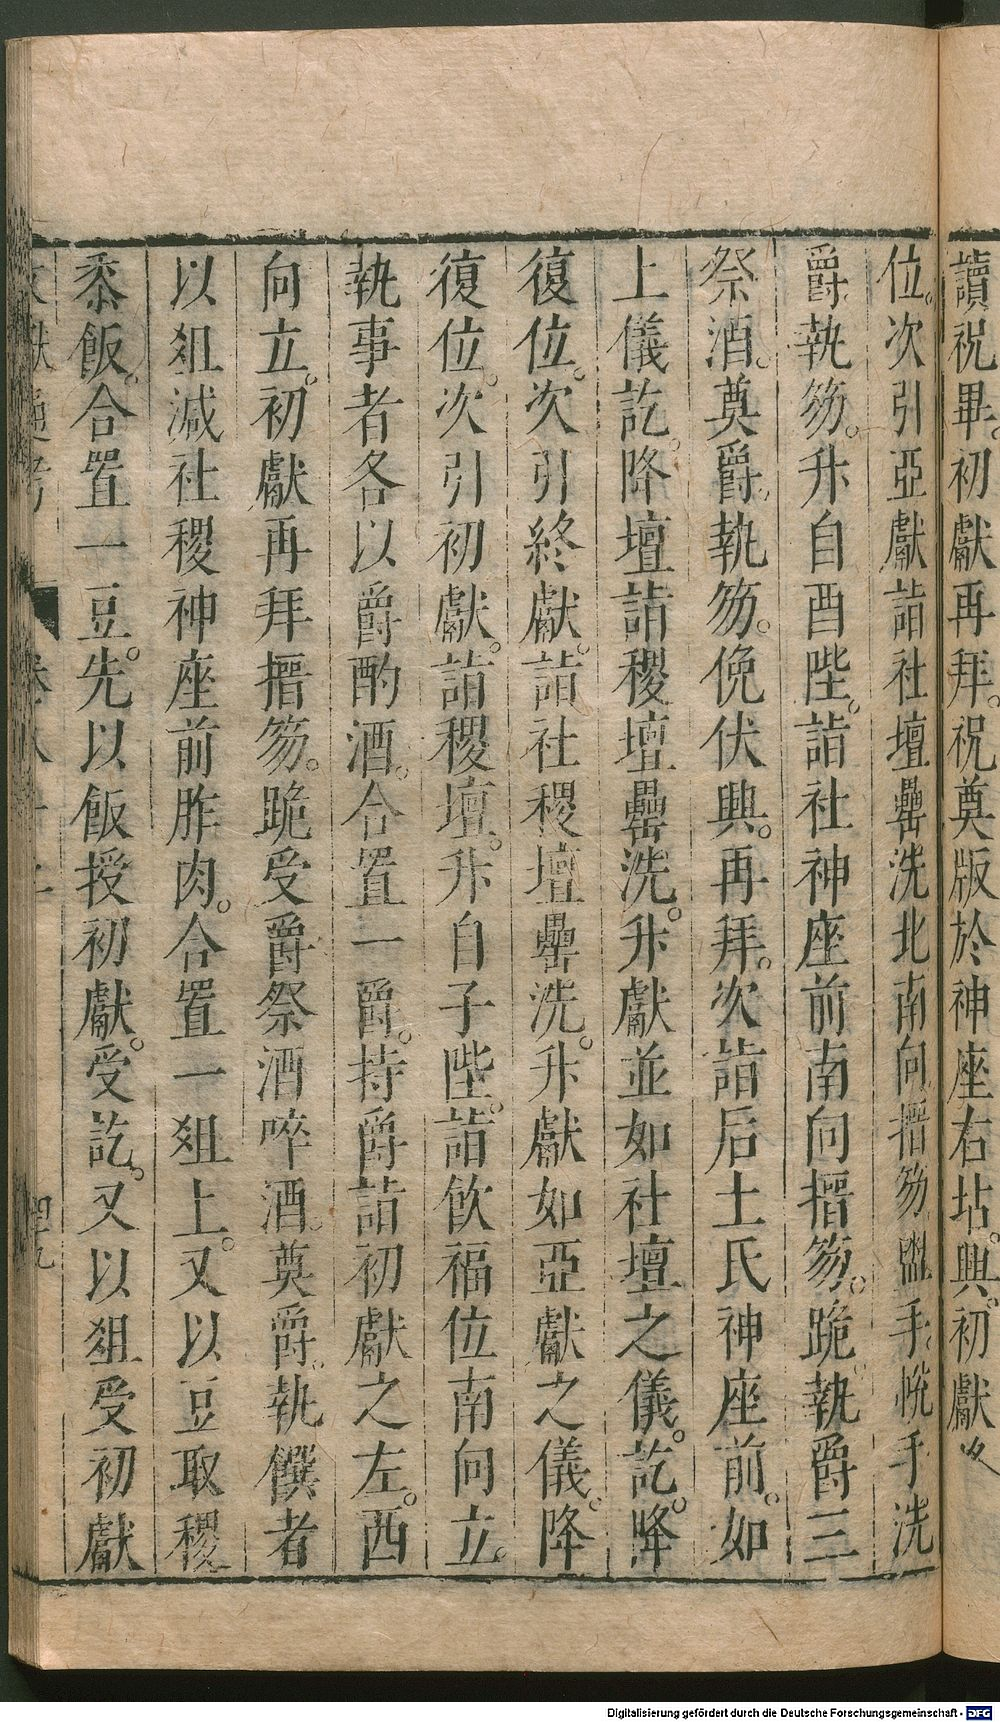 讀祝畢。初獻再拜。祝奠版於神座右坫。興。初獻
位。次引亞獻詣社壇罍洗北南向搢笏盥手。帨手洗
爵。執笏。升自酉陛。詣社神座前南向搢笏。跪。執爵三
祭酒。奠爵。執笏。俛伏興。再拜。次詣后土氏神座前。如
上儀訖。降壇詣稷壇罍洗。升獻並如社壇之儀。訖。降
復位。次引終獻。詣社稷壇罍洗。升獻如亞獻之儀。降
復位。次引初獻。詣稷壇。升自子陛。詣飲福位南向立。
執事者各以爵酌酒。合置一爵。持爵詣初獻之左。西
向立。初獻再拜搢笏。跪受爵祭酒啐酒。奠爵。執饌者
以俎減社稷神座前胙肉。合置一俎上。又以豆取稷
黍飯。合置一豆。先以飯授初獻。受訖。又以俎受初獻
文獻通考 卷八十二 四九
Digitalisierung gefördert durch die Deutsche Forschungsgemeinschaft - DFG